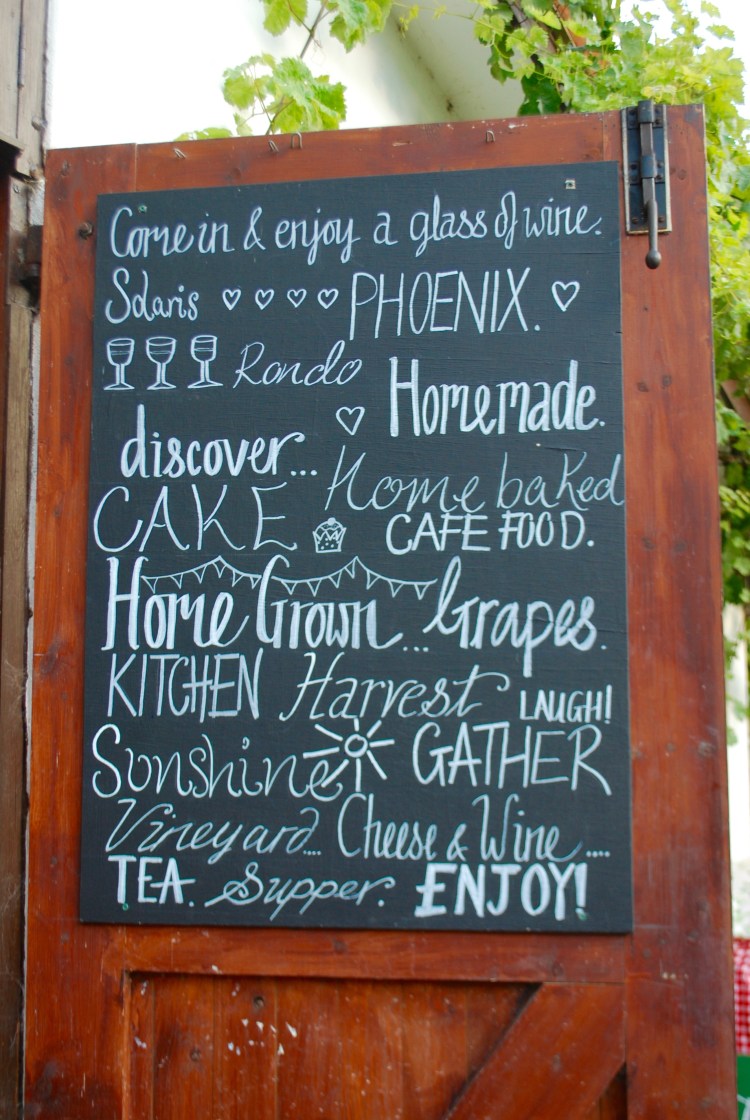 Come in & enjoy a glass of wine.
Solaris PHOENIX.
Rondo Homemade.
discover... Home baked
CAKE CAFE FOOD.
Home Grown... Grapes.
KITCHEN Harvest LAUGH!
Sunshine GATHER
Vineyard.... Cheese & Wine....
TEA. Supper. ENJOY!